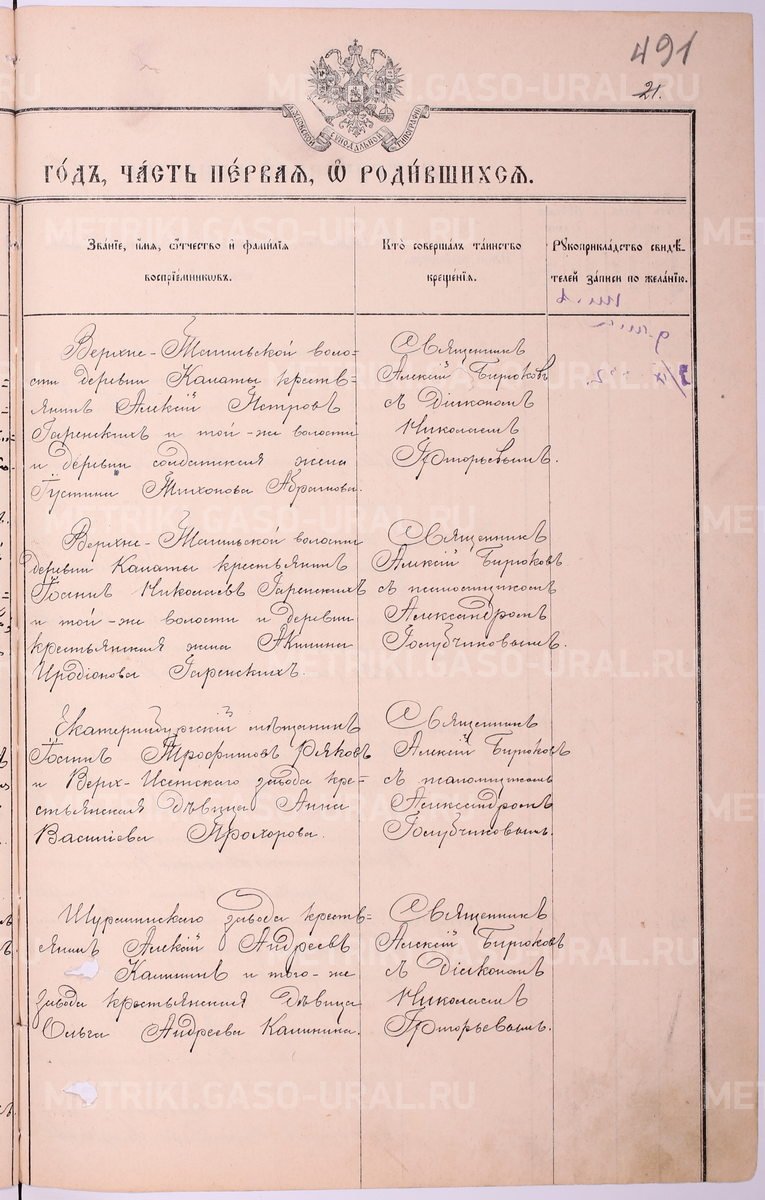 491
21.
СѴНОДАЛЬНОЙ
ТИПОГРАФІИ
ГОДЪ, ЧАСТЬ ПЕРВАЯ, Ѿ РОДИВШИХСЯ.
Званіе, имя, отчество и фамилія воспріемниковъ.
Кто совершалъ таинство крещенія.
Рукоприкладство свидѣтелей записи по желанію.
Верхне-Тагильской воло=
сти деревни Калаты крестъ=
янинъ Алексій Петровъ
Гаренскихъ и той-же волости
и деревни солдатская жена
Іустина Тихонова Абрамова.
Священникъ
Алексій Бирюковъ
съ Діакономъ
Николаемъ
Григорьевымъ.
Верхне-Тагильской волости
деревни Калаты крестьянинъ
Іосифъ Николаевъ Гаренскихъ
и той-же волости и деревни
крестьянская жена Акилина
Иродіонова Гаренскихъ.
Священникъ
Алексій Бирюковъ
съ псаломщикомъ
Александромъ
Голубчиковымъ.
Екатеринбургскій мѣщанинъ
Іосифъ Трофимовъ
и Верх-Исетскаго завода кре=
стьянская дѣвица Анна
Василіева Прохорова.
Священникъ
Алексій Бирюковъ
съ псаломщикомъ
Александромъ
Голубчиковымъ.
Шуралинскаго завода крестъ=
янинъ Алексій Андреевъ
Калининъ и того-же
завода крестьянская дѣвица
Ольга Андреева Калинина.
Священникъ
Алексій Бирюковъ
съ Діакономъ
Николаемъ
Григорьевымъ.
METRIKI.GASO-URAL.RU